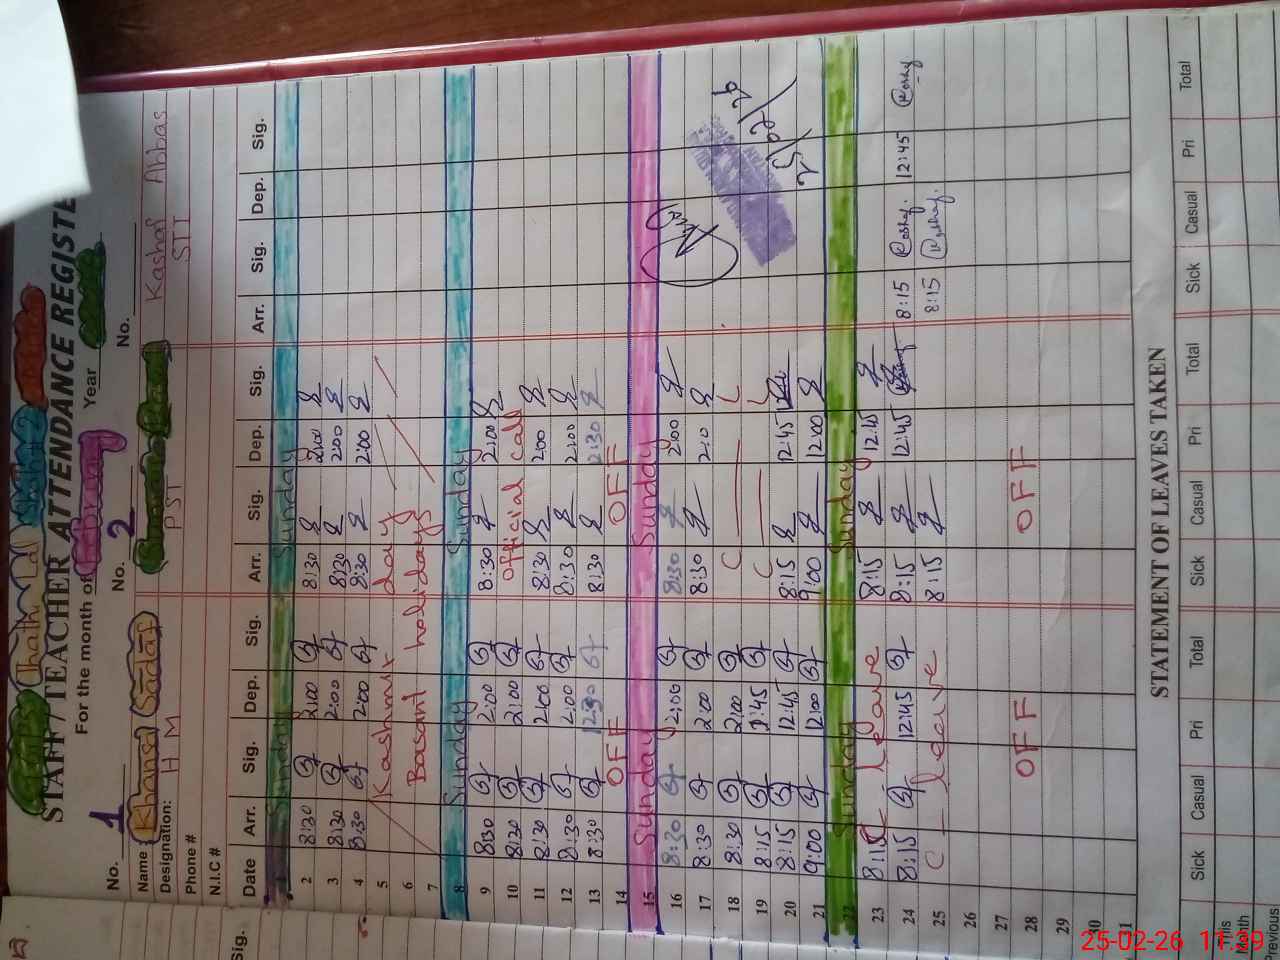 STAFF / TEACHER ATTENDANCE REGISTE
For the month of February Year
No. 1 No. 2 No.
Name Khansa Sadaf Kashaf Abbas
Designation: H M PST STI
Phone #
N.I.C #
Date Arr. Sig. Dep. Sig. Arr. Sig. Dep. Sig. Arr. Sig. Dep. Sig.
Sunday Sunday
2 8:30 2:00 8:30 2:00
3 8:30 2:00 8:30 2:00
4 8:30 2:00 8:30 2:00
5 Kashmir day
6 Basant holidays
7
8 Sunday Sunday
9 8:30 2:00 8:30 2:00
10 8:30 2:00 Official call
11 8:30 2:00 8:30 2:00
12 8:30 2:00 8:30 2:00
13 8:30 12:30 8:30 2:30
14 OFF OFF
15 Sunday Sunday
16 8:30 2:00 8:30 2:00
17 8:30 2:00 8:30 2:0
18 8:30 2:00 C L
19 8:15 1:45 C L
20 8:15 12:45 8:15 12:45
21 9:00 12:00 9:00 12:00
25/02/26
22 Sunday Sunday
23 8:15 leave 8:15 12:45
24 8:15 12:45 8:15 12:45 8:15 Kashaf. 12:45 Kashaf
25 C leave 8:15 8:15 Kashaf.
26
27
28 OFF OFF
29
30
31
STATEMENT OF LEAVES TAKEN
Sick Casual Pri Total Sick Casual Pri Total Sick Casual Pri Total
This
Month
Previous
Sig.
25-02-26 11:39